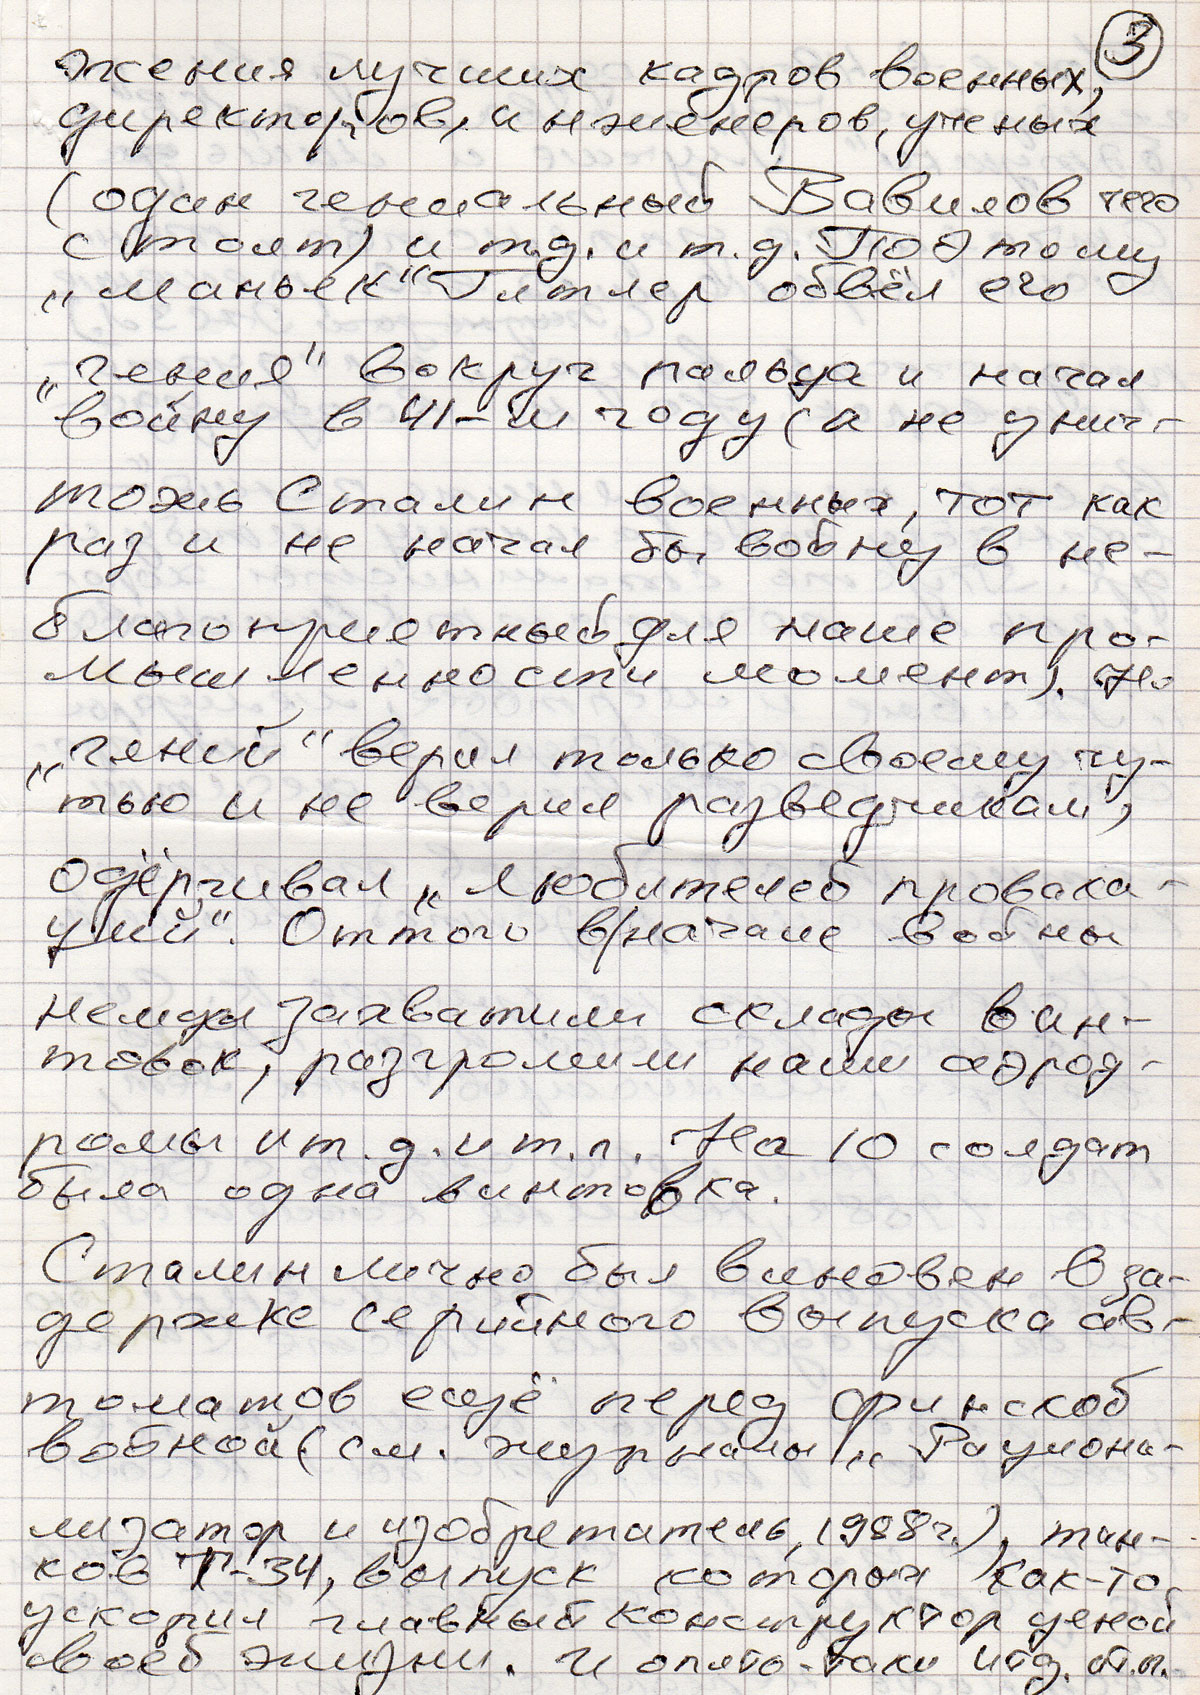 3
жения лучших кадров военных,
директоров, инженеров, ученых
(один гениальный Вавилов чего
стоит) и т.д. и т.д. Поэтому
„маньяк“ Гитлер обвёл его
„гения“ вокруг пальца и начал
войну в 41-м году (а не унич-
тожь Сталин военных, тот как
раз и не начал бы войну в не-
благоприятный для наше про-
мышленности момент). Но
„гений“ верил только своему чу-
тью и не верил разведчикам,
одёргивал „любителей провака-
ций“. Оттого в начале войны
немцы захватили склады вин-
товок, разгромили наши аэрод-
ромы и т.д. и т.п. На 10 солдат
была одна винтовка.
Сталин лично был виновен в за-
держке серийного выпуска ав-
томатов ещё перед финской
войной (см. журналы „Рациона-
лизатор и изобретатель, 1988г.), тан-
ков Т-34, выпуск которых как-то
ускорил главный конструктор ценой
своей жизни. И опять-таки итд. т.п.